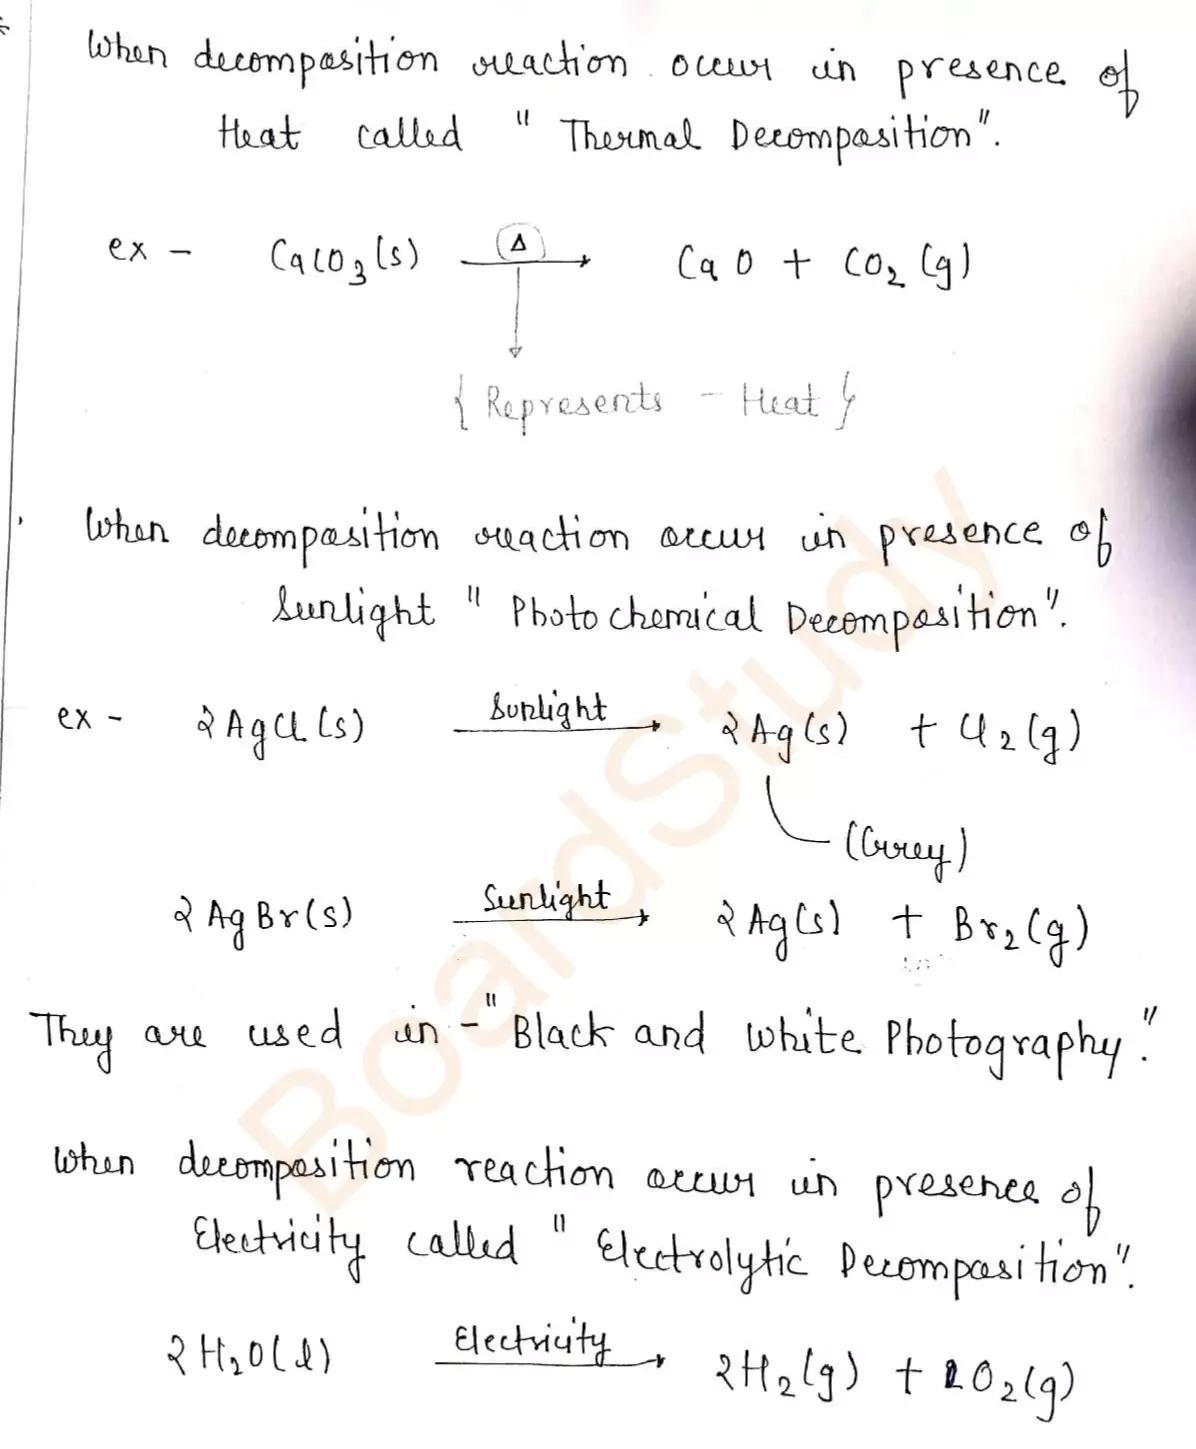 When decomposition reaction occur in presence of
Heat called "Thermal Decomposition".
ex - CaCO₃(s) Δ→ CaO + CO₂(g)
{Represents - Heat}
When decomposition reaction occur in presence of
Sunlight "Photochemical Decomposition".
ex - 2AgCl(s) Sunlight→ 2Ag(s) + Cl₂(g)
(Grey)
2AgBr(s) Sunlight→ 2Ag(s) + Br₂(g)
They are used in - "Black and White Photography."
When decomposition reaction occur in presence of
Electricity called "Electrolytic Decomposition".
2H₂O(l) Electricity→ 2H₂(g) + O₂(g)
BoardStudy